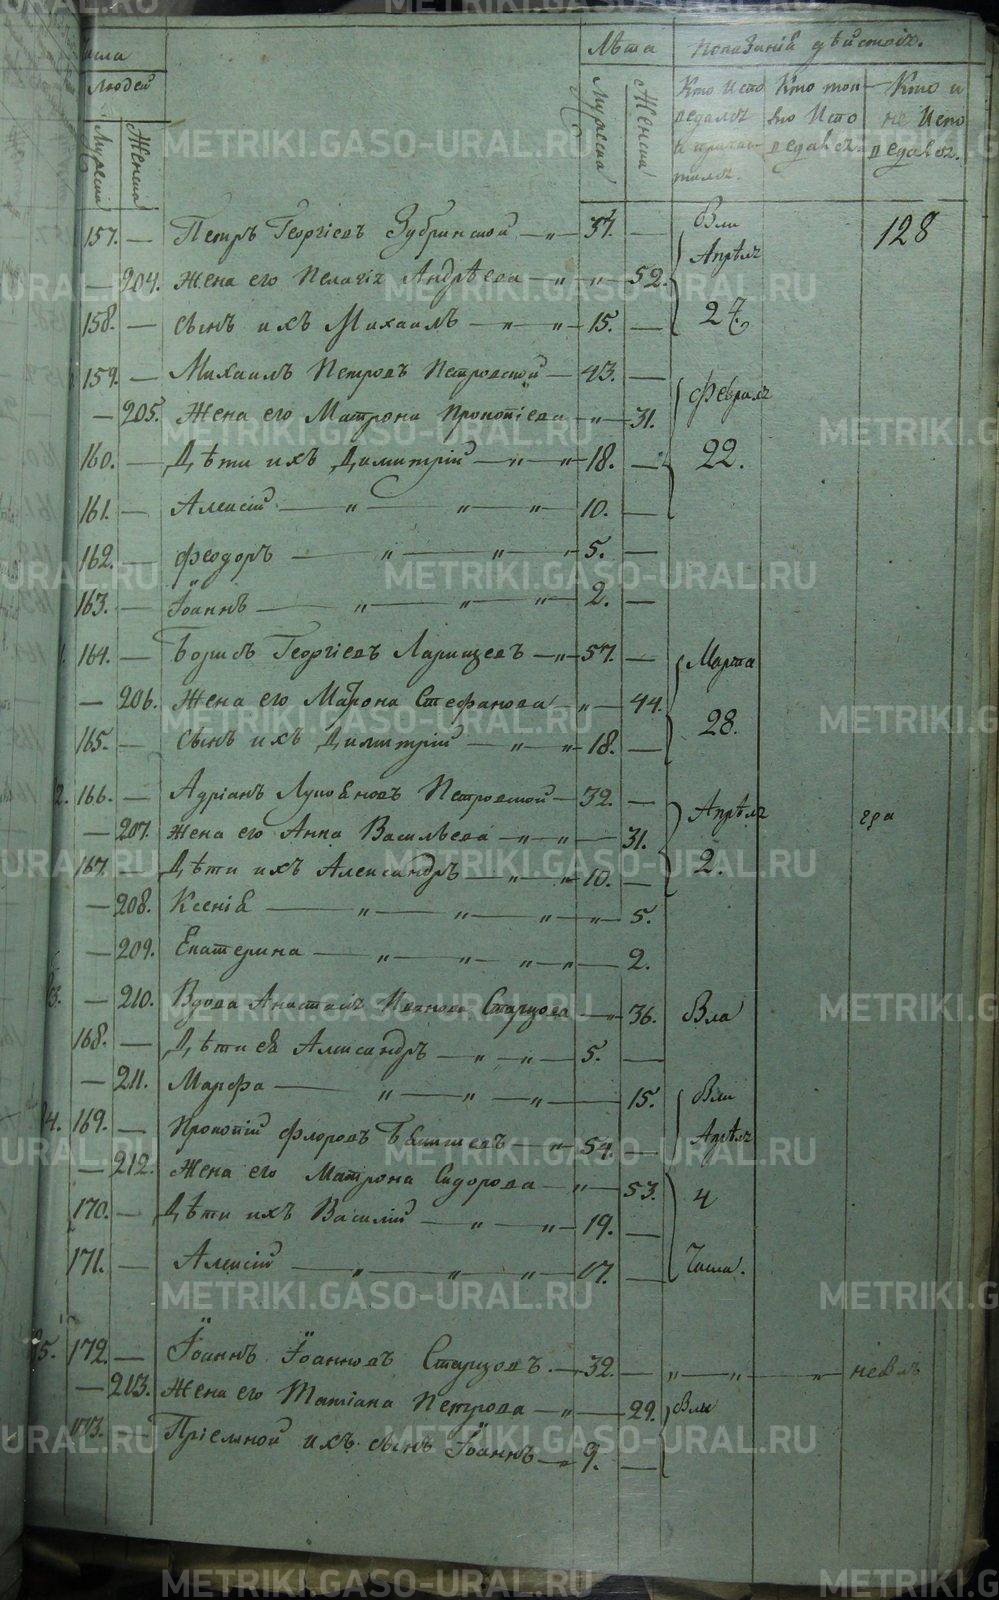 Числа
Людей
Мужескъ
Женска
Лѣта
Мужеска
Женска
Показаніе дѣйствіѧ.
Кто Испо
ведалсѧ
и причас
тилсѧ.
Кто толь
ко Испо
ведавсѧ
Кто и
не Испо
ведавсѧ.
128
157. — Петръ Георгіевъ Зубринской — „ — 37. — Были
— 204. Жена его Пелагіѧ Андрѣева — „ — „ — 52. Апрѣлѧ
158. — сынъ ихъ Михаилъ — „ — „ — 15. — 27.
159. — Михаилъ Петровъ Петровской — 43. — Февралѧ
— 205. Жена его Матрона Прокопіева — „ — 31.
160. — Дѣти ихъ Димитрій — „ — „ — 18. — 22.
161. — Алексій — „ — „ — „ — 10. —
162. — Феодоръ — „ — „ — „ — 5. —
163. — Іоаннъ — „ — „ — „ — 2. —
1. 164. — Борисъ Георгіевъ Ларищевъ — „ — 57. — Марта
— 206. Жена его Матрона Стефанова — „ — 44. 28.
165. — сынъ ихъ Димитрій — „ — „ — 18. —
2. 166. — Адріанъ Петровской — 32. — Апрѣлѧ
— 207. Жена его Анна Васильева — „ — „ — 31. гра
167. — Дѣти ихъ Александръ — „ — „ — 10. — 2.
— 208. Ксеніѧ — „ — „ — „ — „ — 5.
— 209. Екатерина — „ — „ — „ — „ — 2.
3. — 210. Вдова Анастасіѧ Иванова Старцова — „ — 36. Была
168. — Дѣти еѧ Александръ — „ — „ — 5. —
— 211. Марфа — „ — „ — „ — 15. Были
4. 169. — Прокопій Флоровъ — „ — 54. — Апрѣлѧ
— 212. Жена его Матрона Сидорова — „ — 53. 4
170. — Дѣти ихъ Василій — „ — „ — 19. —
171. — Алексій — „ — „ — „ — 17. — Числа.
5. 172. — Іоаннъ Іоанновъ Старцовъ — 32. — „ — „ — „ — небылъ
— 213. Жена его Татіана Петрова — „ — 29. Были
173. — Пріемной ихъ сынъ Іоаннъ — „ — 9. —
METRIKI.GASO-URAL.RU